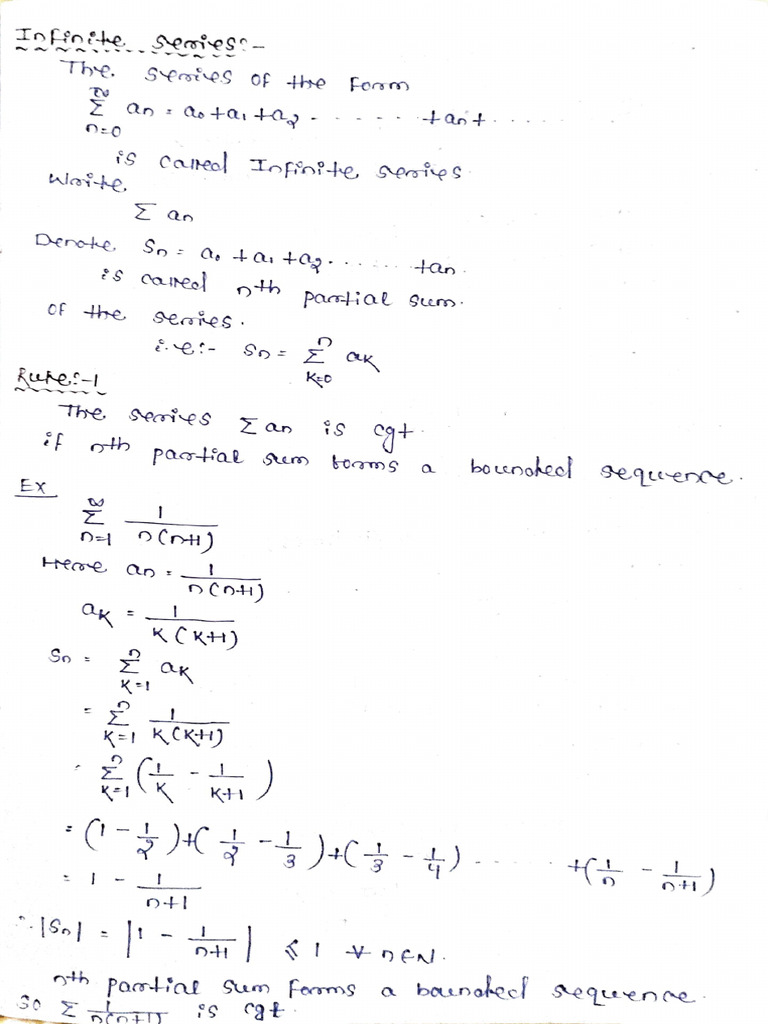 Infinite series:-
The series of the form
∞
Σ an = a0 + a1 + a2 - - - - - - + an + - - - -
n=0
is called Infinite series
Write
Σ an
Denote Sn = a0 + a1 + a2 - - - - - - + an
is called nth partial sum.
of the series.
i.e:- Sn = n Σ K=0 aK
Rule:-1
The series Σ an is cgt.
if nth partial sum forms a bounded sequence.
Ex
∞ Σ n=1 1/n(n+1)
Here an = 1/n(n+1)
aK = 1/K(K+1)
Sn = n Σ K=1 aK
= n Σ K=1 1/K(K+1)
= n Σ K=1 (1/K - 1/K+1)
= (1 - 1/2) + (1/2 - 1/3) + (1/3 - 1/4) - - - - - + (1/n - 1/n+1)
= 1 - 1/n+1
∴ |Sn| = |1 - 1/n+1| ≤ 1 ∀ n∈N.
nth partial sum forms a bounded sequence.
So Σ 1/n(n+1) is cgt.